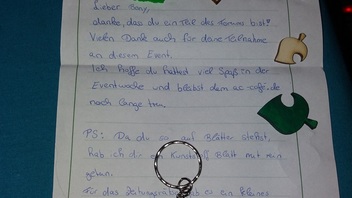 Lieber Sony,
danke, das du ein Teil des Forums bist!
Vielen Dank auch für deine Teilnahme
an diesem Event.
Ich hoffe du hattest viel Spaß in der
Eventwoche und bleibst dem ac-café.de
noch lange treu.
PS: Da du so auf Blätter stehst,
hab ich dir ein Kunststoff Blatt mit rein
getan.
Für das Zeitungsrätsel gab es ein kleines